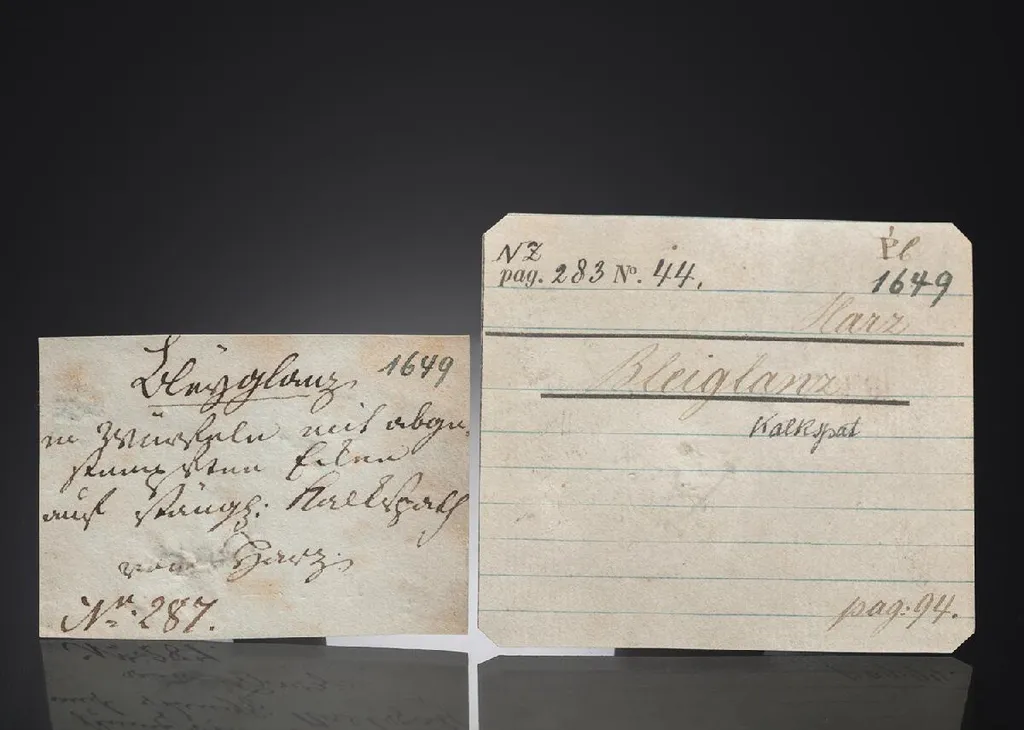 Bleyglanz 1649
in Würfeln mit abge-
stumpften Ecken
auf stängl: Kalkspath
vom Harz
No. 287.
NZ Pb
pag. 283 No. 44. 1649
Harz
Bleiglanz
Kalkspat
pag: 94.